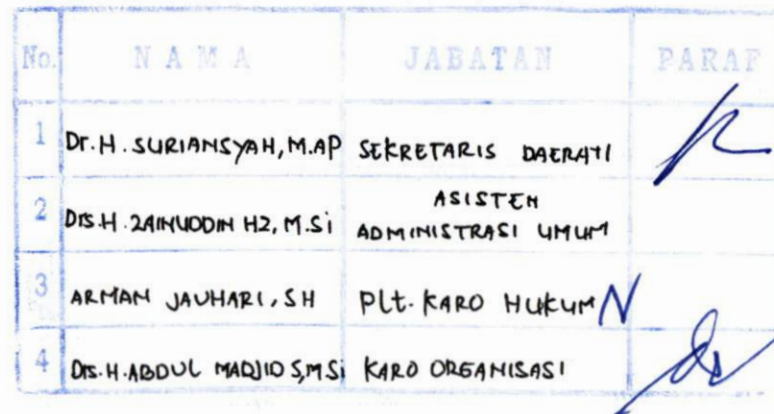 No. NAMA JABATAN PARAF
1 Dr. H. SURIANSYAH, M.AP SEKRETARIS DAERAH
2 Drs. H. ZAINUDDIN HZ, M.Si ASISTEN
ADMINISTRASI UMUM
3 ARMAN JAUHARI, SH Plt. KARO HUKUM
4 Drs. H. ABDUL MADJID S, M Si KARO ORGANISASI